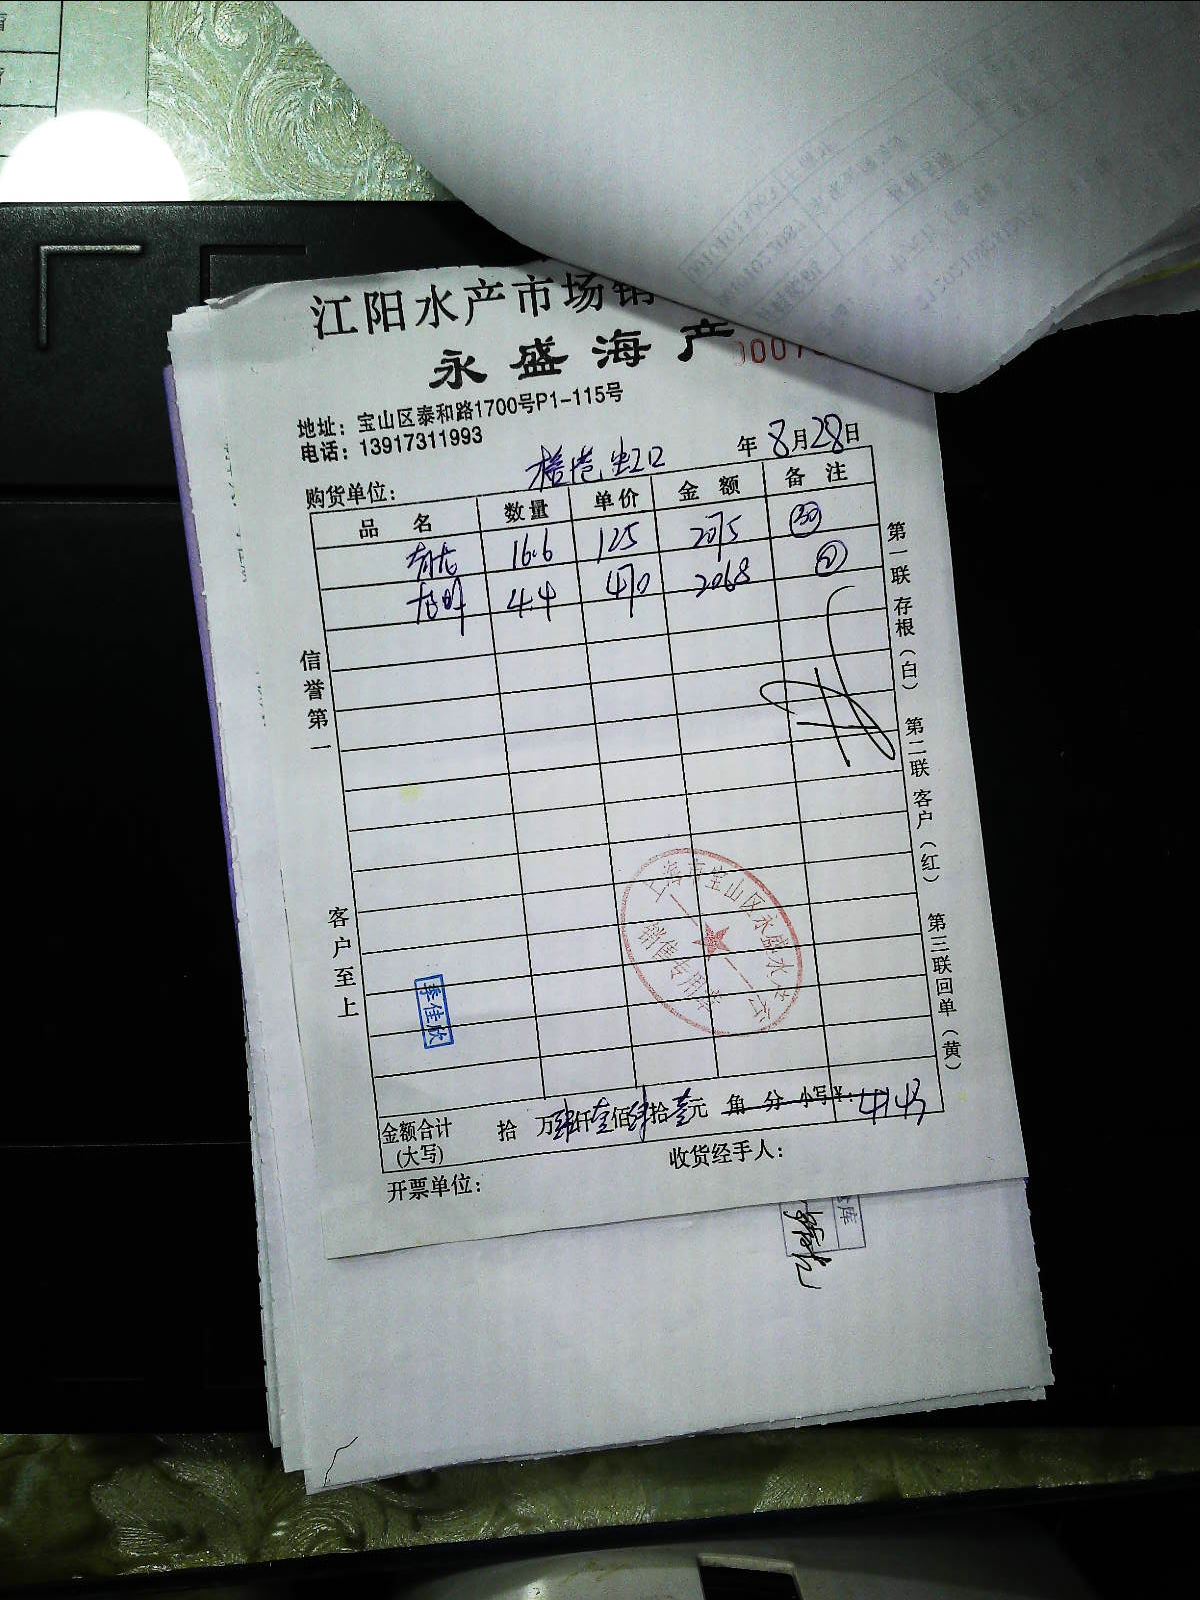 江阳水产市场销
永盛海产
地址：宝山区泰和路1700号P1-115号
电话：13917311993
年 8月28日
购货单位：
品 名 数量 单价 金 额 备 注
青龙 16.6 125 2075 ㉚
4.4 470 2068 ②
信誉第一
客户至上
第一联 存根（白） 第二联 客户（红） 第三联 回单（黄）
上海市宝山区永盛水产
销售专用章
李佳欣
金额合计(大写) 拾 万肆仟壹佰肆拾叁元 角 分 小写￥：4143
开票单位：
收货经手人：
库